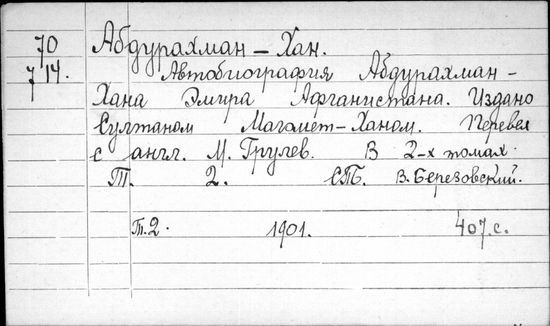 70 Абдурахман – Хан.
7 14. Автобиография Абдурахман –
Хана Эмира Афганистана. Издано
Султаном Магомет-Ханом. Перевел
с англ. М. Грулев. В 2-х томах.
Т. 2. СПБ. В. Березовский.
Т.2. 1901. 407 с.